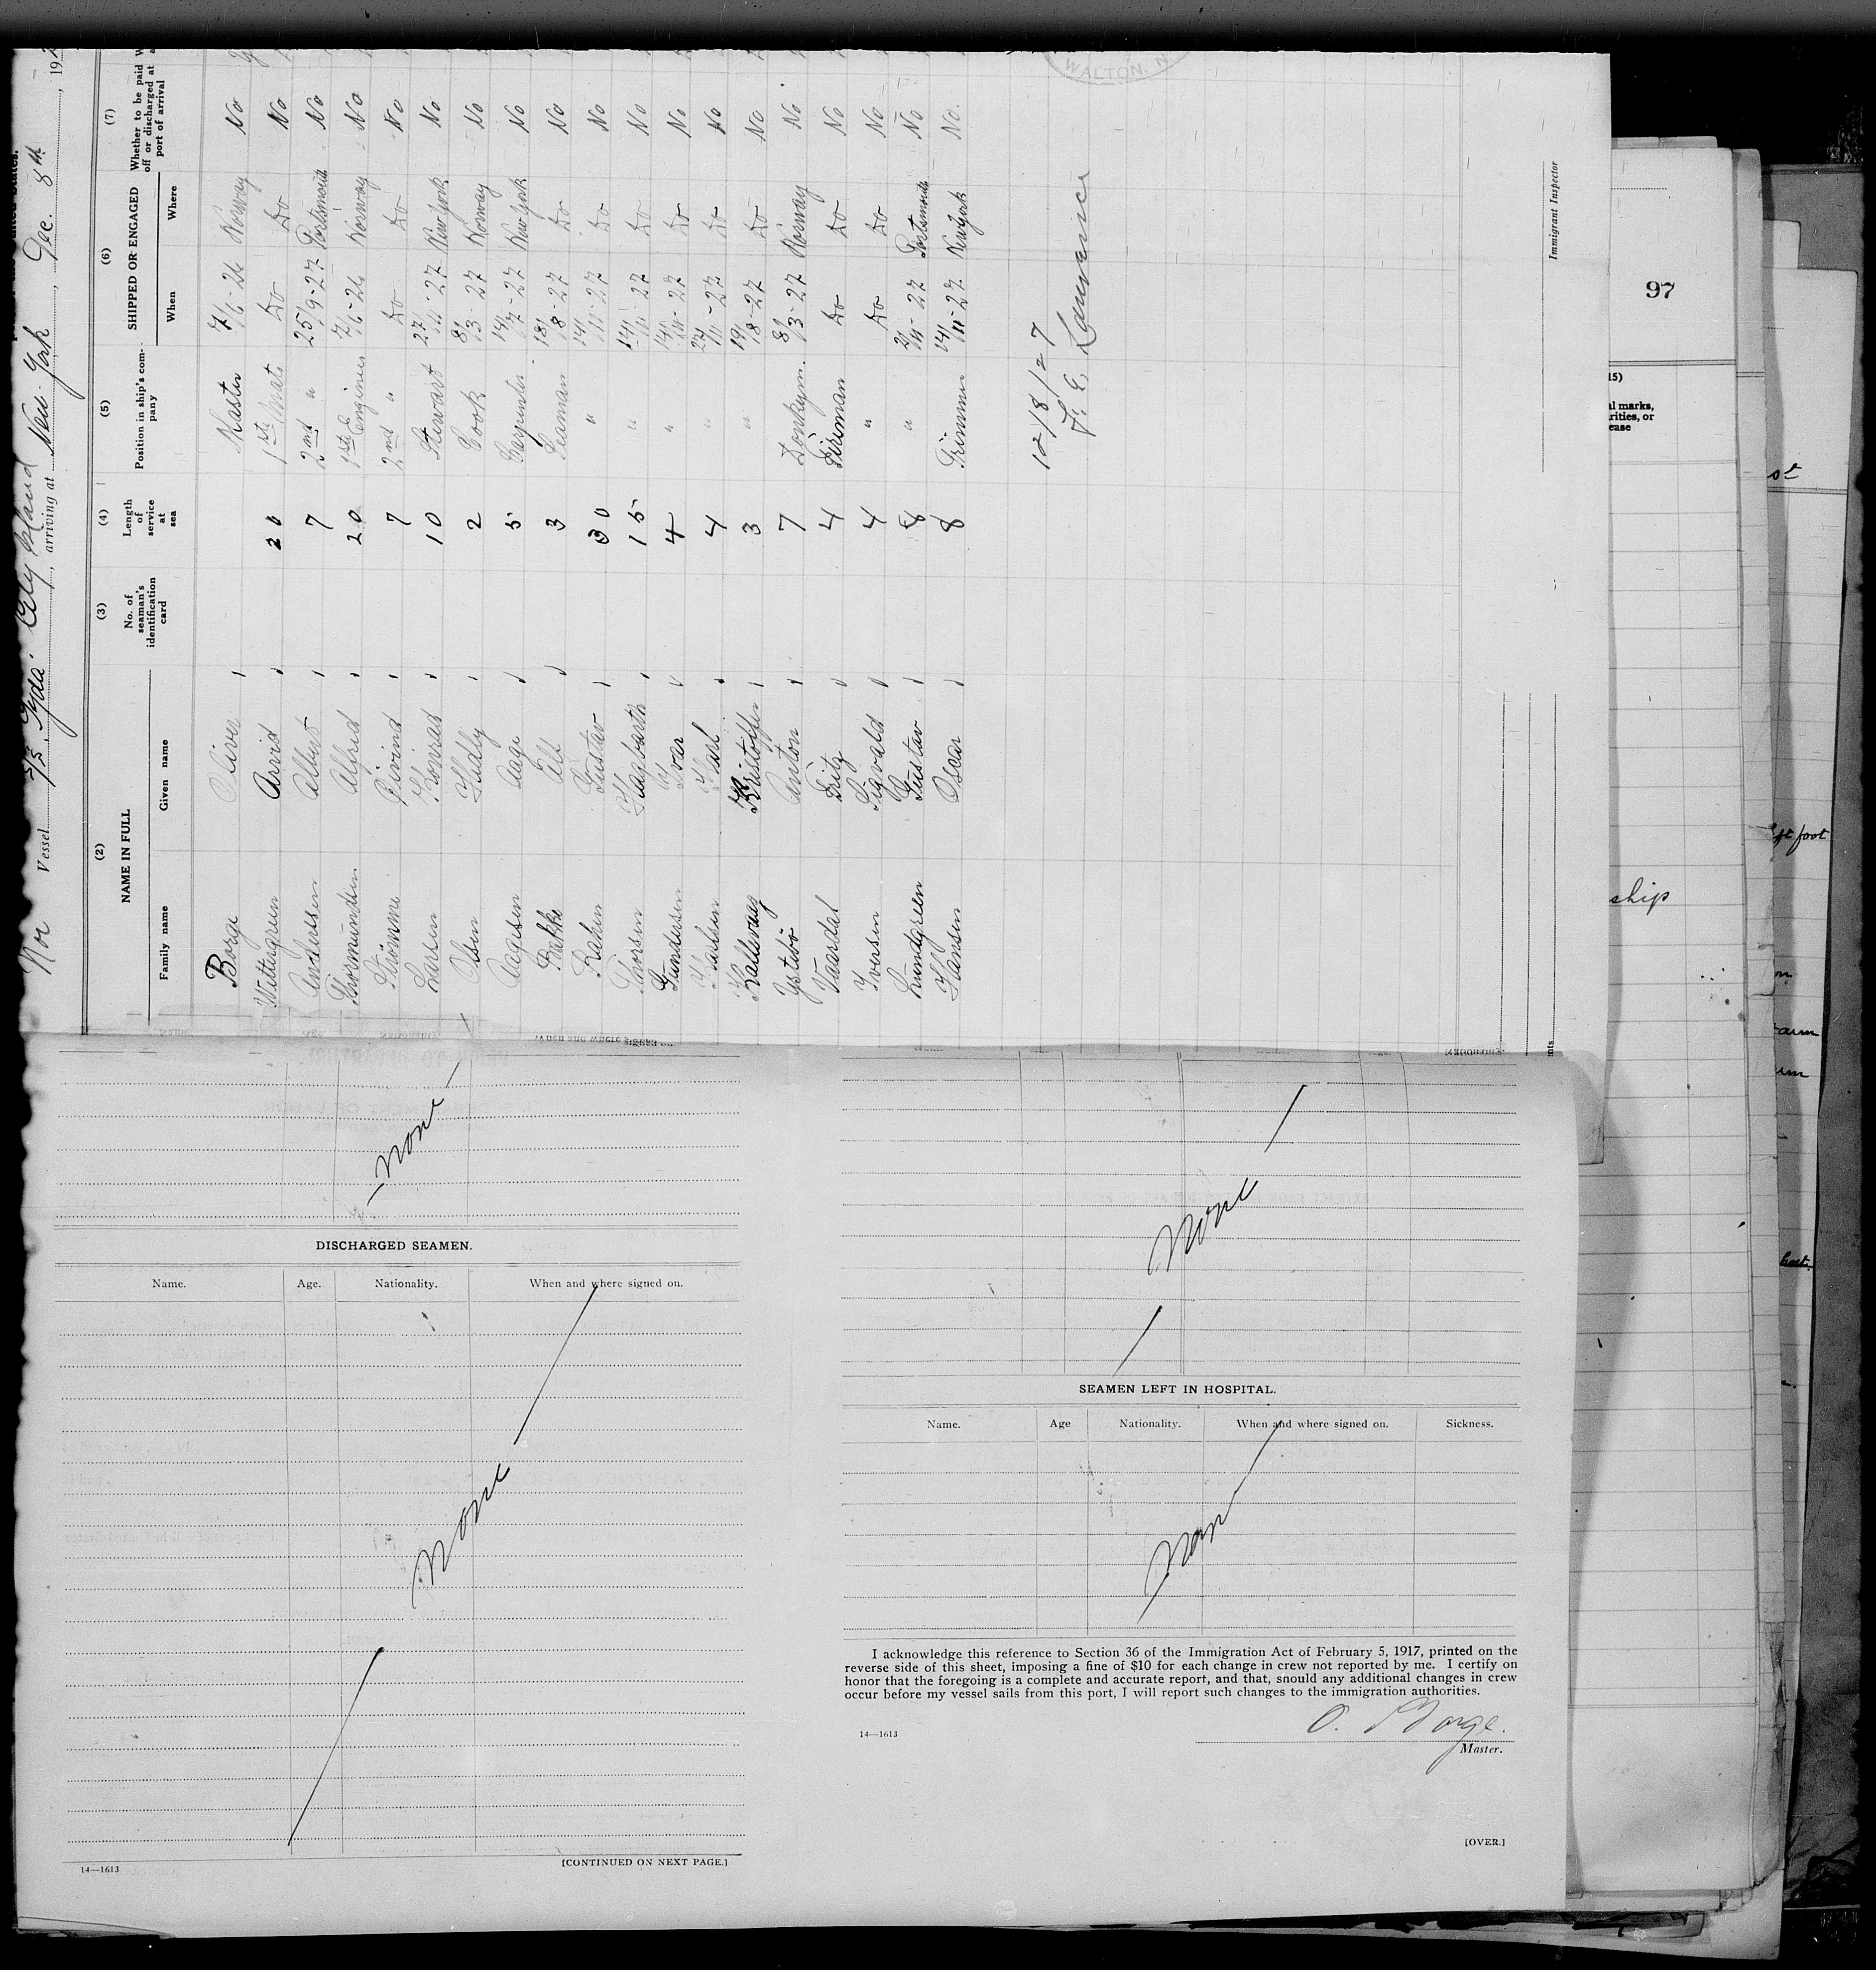 Nor Vessel S/S "Gyda" City Island, arriving at New-York, Dec. 8th, 19
(2) (3) (4) (5) (6) (7)
NAME IN FULL No. of seaman's identification card Length of service at sea Position in ship's company SHIPPED OR ENGAGED Whether to be paid off or discharged at port of arrival
Family name Given name When Where
Borge Oliver Master 7/6-26 Norway No
Wittergreen Arvid 20 1st Mate Do Do No
Anderssen Albert 7 2nd " 25/9-27 Portsmouth No
Thormundsen Alfred 20 1st Engineer 7/6-26 Norway No
Strömme Eivind 7 2nd " Do Do No
Larsen Konrad 10 Stewart 27/11-27 New York No
Olsen 2 Cook 8/3-27 Norway No
Aagesen Aage 5 Carpenter 14/7-27 New York No
Bakke 3 Seaman 18/8-27 Do No
Gustav 30 " 14/11-27 Do No
Thorsen Hagbarth 15 " 14/11-27 Do No
Gundersen Ivar 4 " 14/11-27 Do No
Karlsen Karl 4 " 22/11-27 Do No
Kallevaag Kristoffer 3 " 19/8-27 Do No
Ystebö Anton 7 Donkeym. 8/3-27 Norway No
Vaardal Fritz 4 Fireman Do Do No
Iversen Sigvald 4 " Do Do No
Lundgreen Gustav 8 " 27-27 Portsmouth No
Hansen Oscar 8 Trimmer 14/11-27 New York No.
12/8/27
F. E. Lawrence
Immigrant Inspector
WALTON, N.
97
15)
al marks,
rities, or
ease
st
ft foot
ship
arm
—None—
DISCHARGED SEAMEN.
Name. Age. Nationality. When and where signed on.
None
14—1613 [CONTINUED ON NEXT PAGE.]
None
SEAMEN LEFT IN HOSPITAL.
Name. Age Nationality. When and where signed on. Sickness.
None
I acknowledge this reference to Section 36 of the Immigration Act of February 5, 1917, printed on the
reverse side of this sheet, imposing a fine of $10 for each change in crew not reported by me. I certify on
honor that the foregoing is a complete and accurate report, and that, should any additional changes in crew
occur before my vessel sails from this port, I will report such changes to the immigration authorities.
O. Borge.
14—1613 Master.
[OVER.]